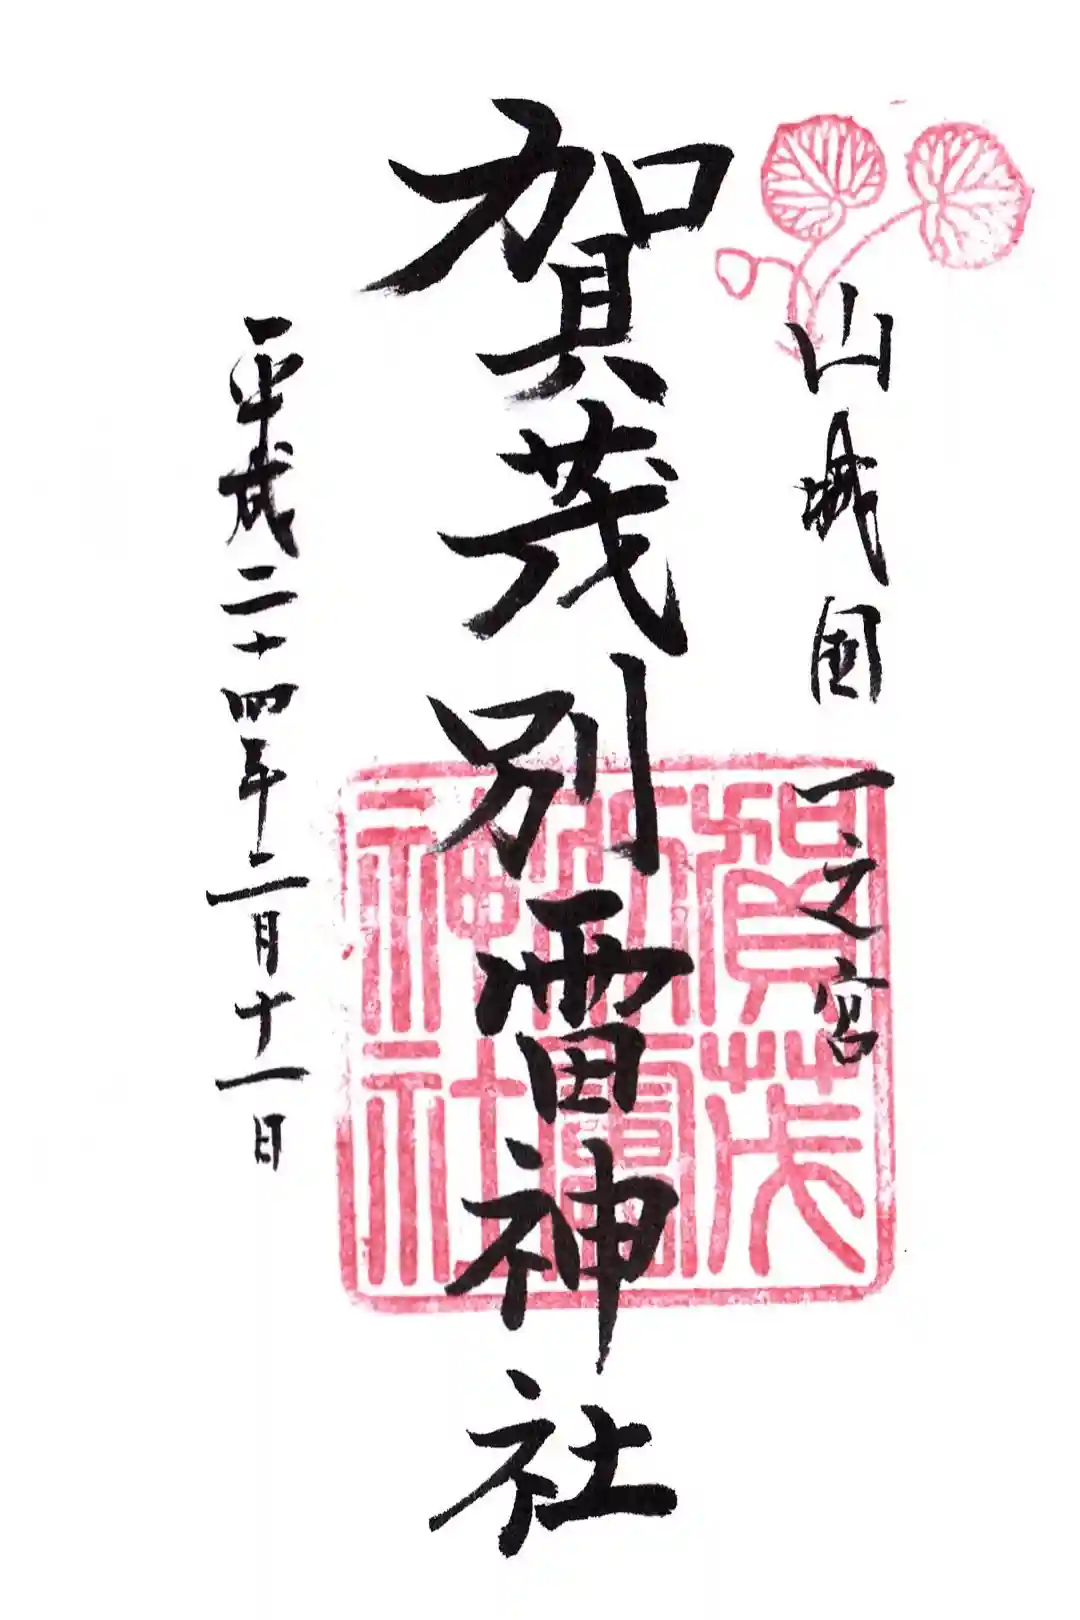 山城国一之宮
賀茂別雷神社
平成二十四年二月十一日
賀茂
別雷
神社